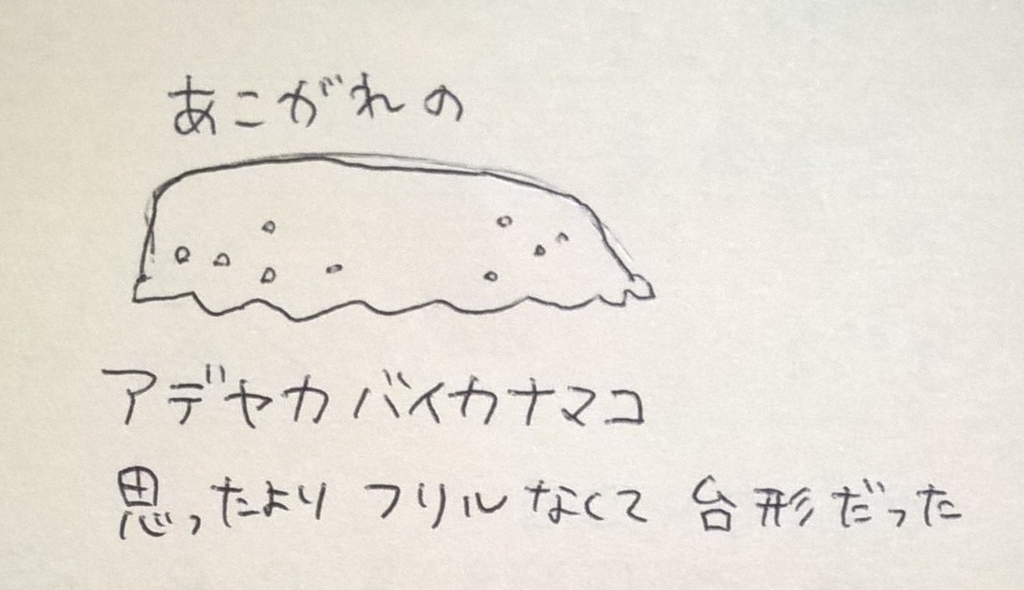 あこがれの
アデヤカバイカナマコ
思ったより フリルなくて 台形だった